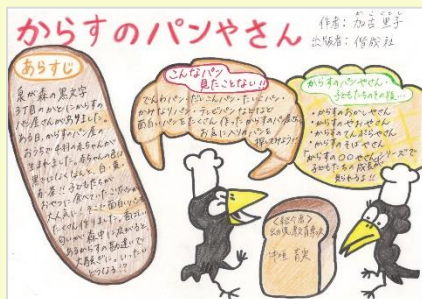 からすのパンやさん
作者:加古 里子
出版者:偕成社
あらすじ
泉が森の黒文字
3丁目のかどにからすの
パン屋さんがありました。
ある日、からすのパン屋の
おうちで4羽の赤ちゃんが
生まれました。赤ちゃんの色は
黒ではなくなんと、白・黄・
赤・茶!!子どもたちが
おやつに食べていたこげパンが
大人気!そこに面白いパンを
たくさん作りました。香ばしい
匂いが森中に広がると、
あるからすの勘違いで
大騒ぎに。いったい
どうなる!?
こんなパン
見たことない!!
でんわパン・だいこんパン・たいこパン・
かみなりパン・テレビパンなどなど
面白いパンをたくさん作ったからすのパン屋さん。
お気に入りのパンを
探してみよう!!
からすのパンやさん・
子どもたちのその後…
・からすのおかしやさん
・からすのやおやさん
・からすのてんぷらやさん
・からすのそばやさん
「からすの○○やさん」シリーズで
子どもたちの成長が
見られるよ!!
<紹介者>
幼児教育専攻